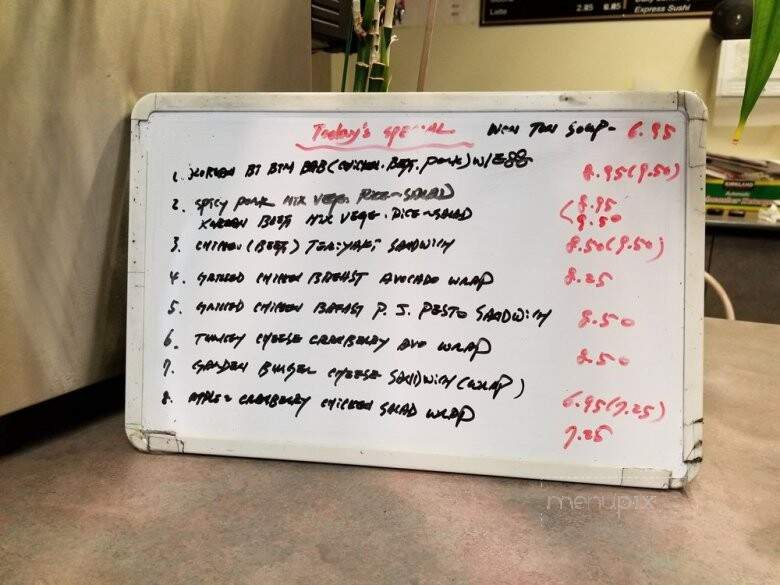 Latte 2.85 6.85 Express Sushi
Today's SPECIAL WON TON SOUP- 6.95
1. KOREAN BI BIM BAB (CHICKEN. BEEF. PORK) W/EGG 8.95(9.50)
2. SPICY PORK MIX VEGE. RICE~SALAD 8.95
KOREAN BEEF MIX VEGE. RICE~SALAD 9.50
3. CHICKEN (BEEF) TERIYAKI SANDWICH 8.50(9.50)
4. GRILLED CHICKEN BREAST AVOCADO WRAP 8.25
5. GRILLED CHICKEN BREAST P. J. PESTO SANDWICH 8.50
6. TURKEY CHEESE CRANBERRY AVO WRAP 8.50
7. GARDEN BURGER CHEESE SANDWICH (WRAP) 6.95(7.25)
8. APPLE CRANBERRY CHICKEN SALAD WRAP 7.25
KIRKLAND
menupix